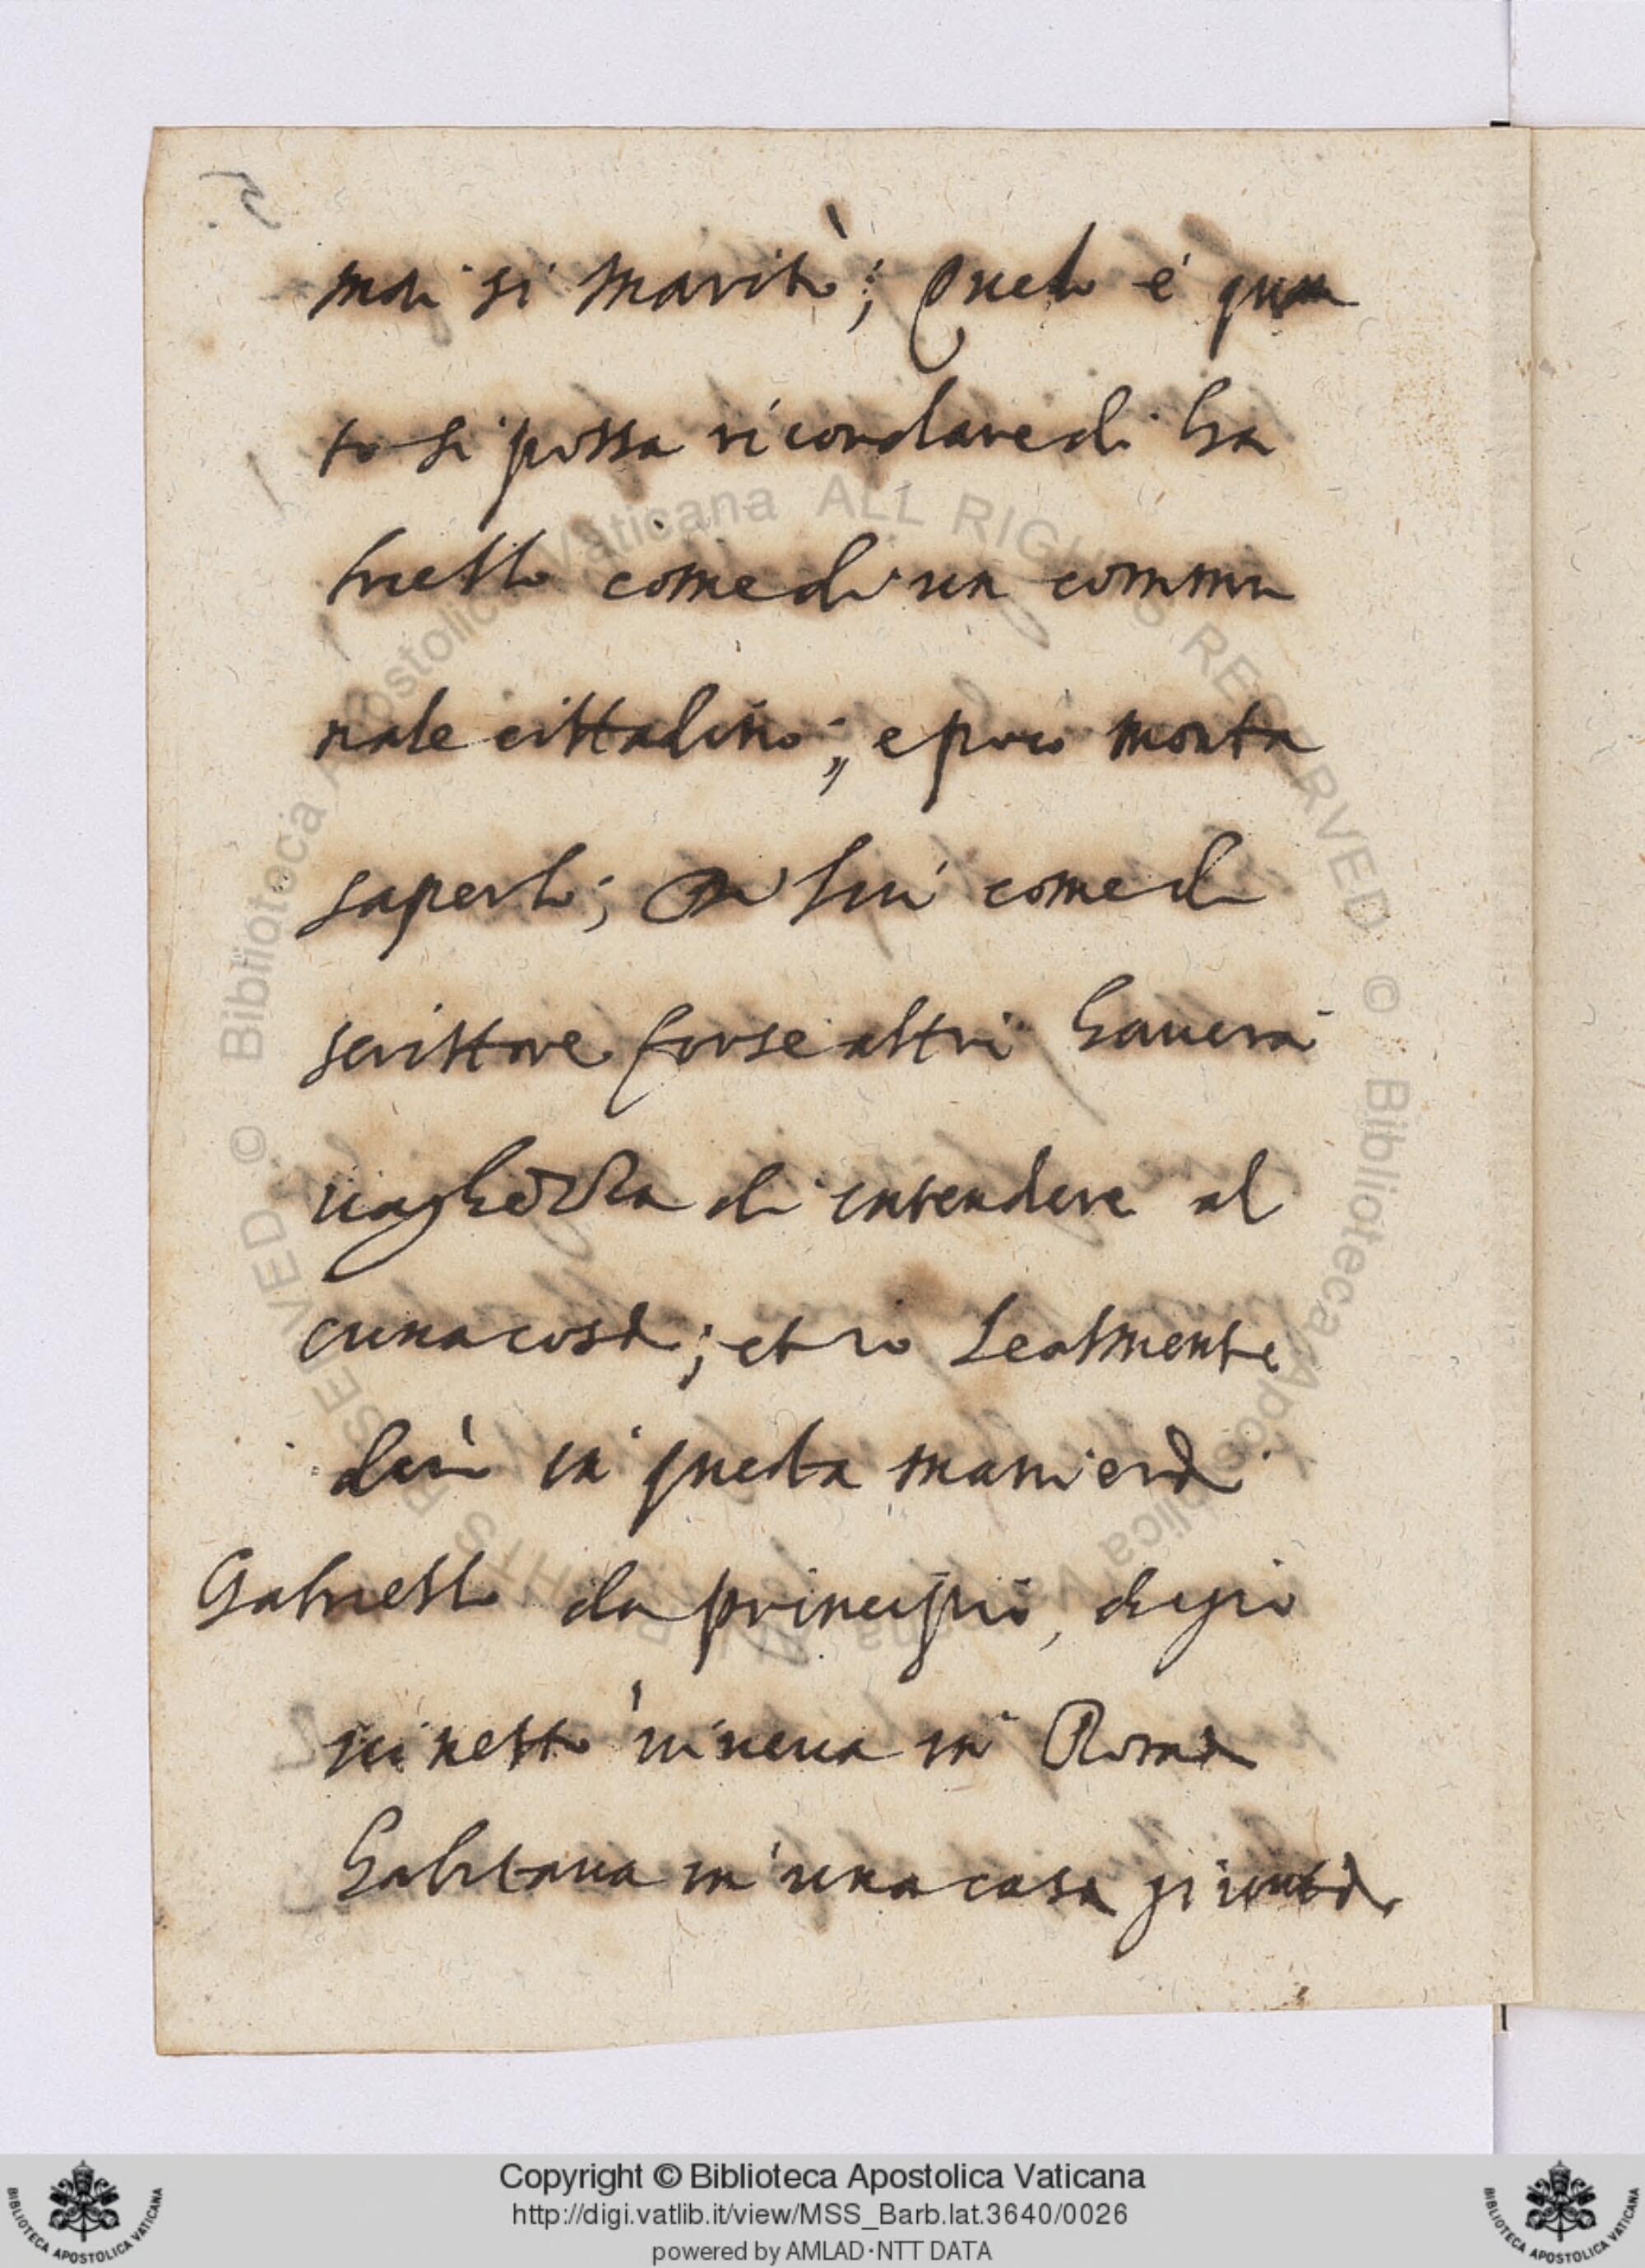 mai si maritò; Questo é quan
to si possa ricordare di Ga
briello come di un commu
nale cittadino; e poco monta
saperlo; Di lui come di
scrittore forse altri haverà
vaghezza di intendere al
cuna cosa; et io Lealmente
dirò in questa maniera
Gabriello da principio, che gio
vinetto viveva in Roma
habitava in una casa giunta
Copyright © Biblioteca Apostolica Vaticana
http://digi.vatlib.it/view/MSS_Barb.lat.3640/0026
powered by AMLAD·NTT DATA
BIBLIOTECA APOSTOLICA VATICANA
BIBLIOTECA APOSTOLICA VATICANA
© Biblioteca Apostolica Vaticana ALL RIGHTS RESERVED
© Biblioteca Apostolica Vaticana ALL RIGHTS RESERVED